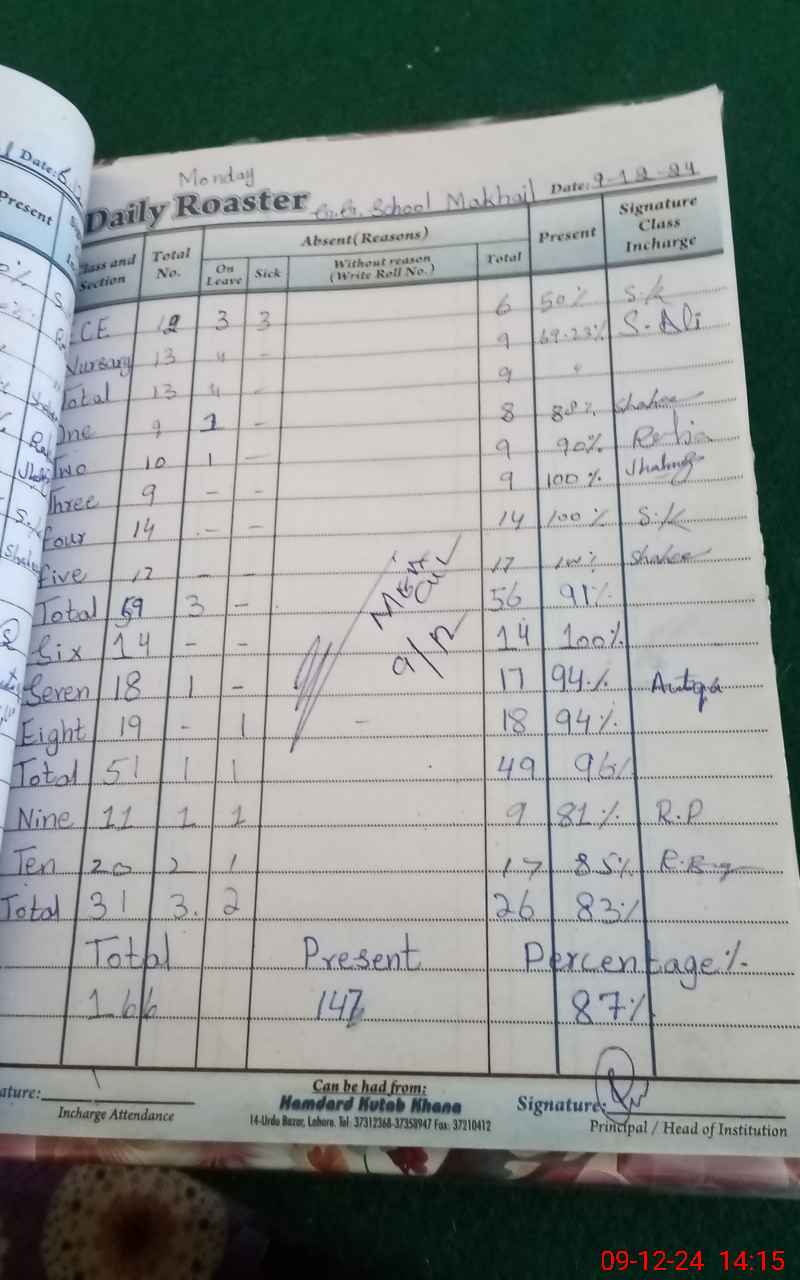 Date: 6.12
Present
Monday
Daily Roaster G.G. School Makhail Date: 9-12-24
Class and Section Total No. Absent(Reasons) On Leave Sick Without reason (Write Roll No.) Total Present Signature Class Incharge
ECE 12 3 3 6 50% S.K
Nursary 13 4 - 9 69.23% S. Ali
Total 13 4 - 9 "
One 9 1 - 8 88% Shahee
Two 10 1 - 9 90%
Three 9 - - 9 100%
Four 14 - - 14 100% S.K
Five 17 - - 17 100% Shahee
Total 59 3 - 56 91%
Six 14 - - 14 100%
Seven 18 1 - 17 94%
Eight 19 - 1 - 18 94%
9/12
Total 51 1 1 49 96%
Nine 11 1 1 9 81% R.P
Ten 20 2 1 17 85%
Total 31 3. 2 26 83%
Total Present Percentage %
166 147 87%
ature: Incharge Attendance
Can be had from:
Hamdard Kutab Khana
14-Urdu Bazar, Lahore. Tel: 37312368-37358947 Fax: 37210412
Signature:
Principal / Head of Institution
09-12-24 14:15